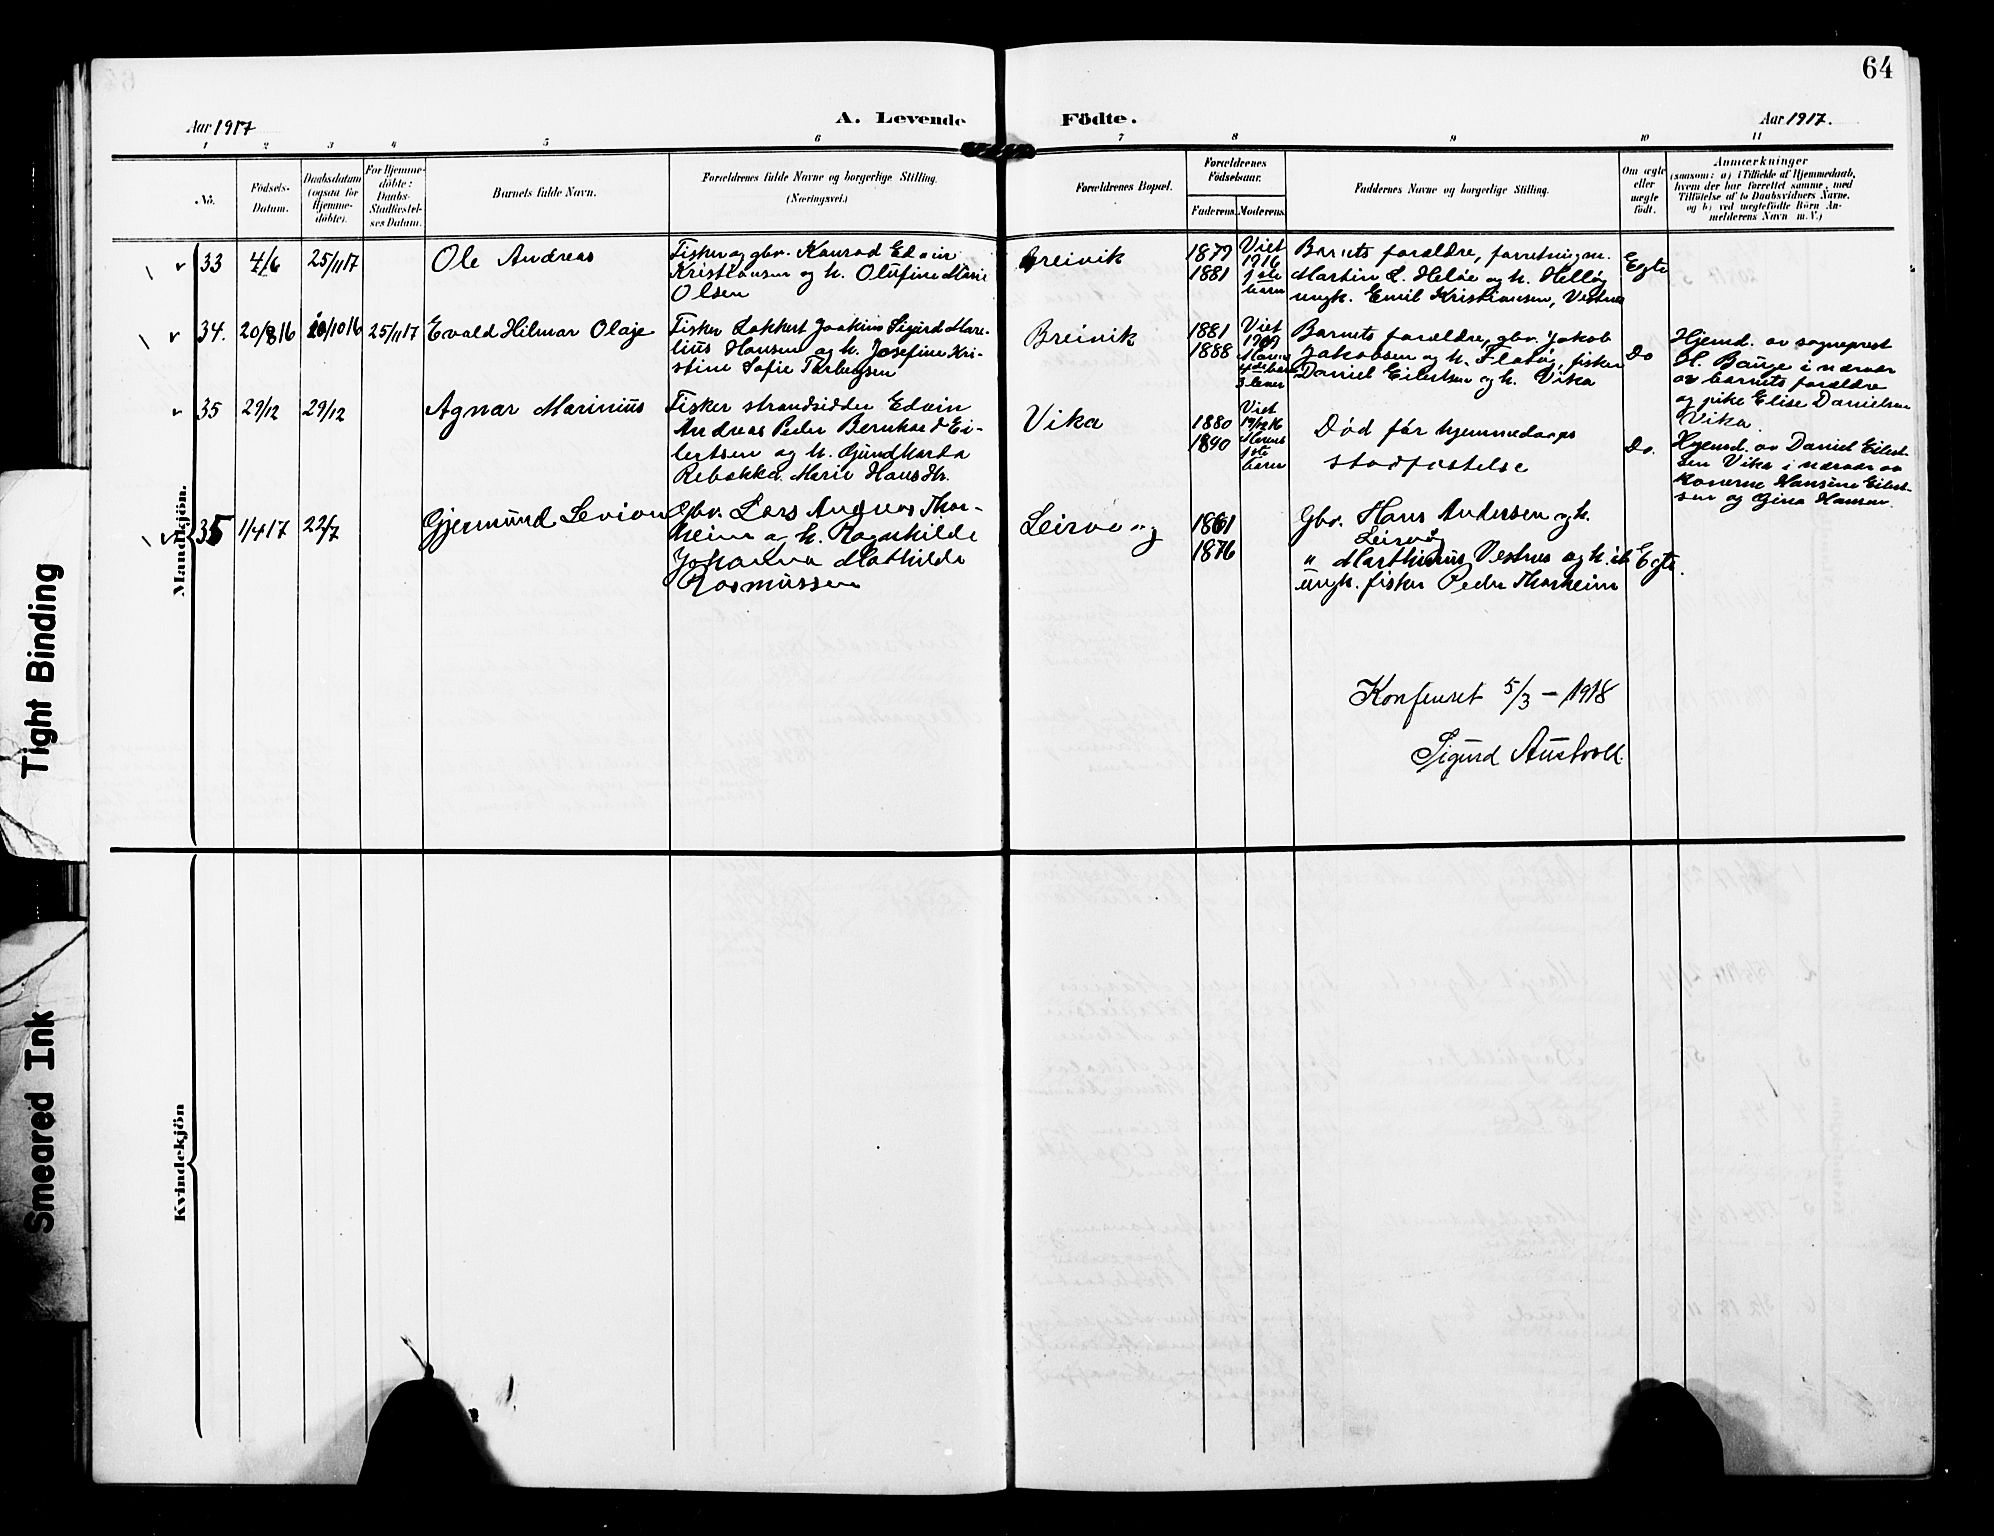 64
Aar 1917
A. Levende
Födte.
Aar 1917.
1 2 3 4 5 6 7 8 9 10 11
No.
Födsels-
Datum.
Daabsdatum
(ogsaa for
Hjemme-
döbte).
For Hjemme-
döbte:
Daabs-
Stadfæstel-
ses Datum.
Barnets fulde Navn.
Forældrenes fulde Navne og borgerlige Stilling.
(Næringsvei.)
Forældrenes Bopæl.
Forældrenes
Födselsaar.
Faderens. Moderens.
Faddernes Navne og borgerlige Stilling.
Om ægte
eller
uægte
født.
Anmærkninger
(saasom: a) i Tilfælde af Hjemmedaab,
hvem der har forrettet samme, med
Tilföielse af to Daabsvidners Navne,
og b) ved uægtefödte Börn An-
melderens Navn m. V.)
Mandkjön.
33
4/6
25/11 17
Ole Andreas
Fisker og gbr. Konrad Edvin
Kristiansen og h. Olufine Marie
Olsen
Breivik
1879
1881
Viet
1916
1ste
barn
Barnets forældre, forretningsm.
Martin L. Heløe og h. Helløy
ungk. Emil Kristiansen, Vestnes
Egte
34.
20/8 16
10/10 16
25/11 17
Evald Hilmar Olaje
Fisker Lokkert Joakim Sigurd Mare-
lius Hansen og h. Josefine Kri-
stine Sofie Torbergsen
Breivik
1881
1888
Viet
1909
4de barn
3 lever
Barnets forældre, gbr. Jakob
Jakobsen og h. Flatøy, fisker
Daniel Eilertsen og h. Vika
Do
Hjemd. av sogneprest
H. Bauge i nærvær
av barnets forældre
og pike Elise Danielsen
Vika
35
29/12
29/12
Agnar Marinius
Fisker strandsidder Edvin
Andreas Peder Bernhard Ei-
lertsen og h. Gundharda
Rebekka Marie Hansdtr.
Vika
1880
1890
Viet
1ste
barn
Død før hjemmedaaps
stadfestelse
Do.
Hjemd. av Daniel Eilert-
sen Vika i nærvær av
konerne Hansine Eilert-
sen og Gina Hansen.
35
1/4 17
22/7
Gjermund Levion
Gbr. Lars Andreas Thor-
heim og h. Ragnhilde
Johanna Mathilde
Rasmussen
Leirvaag
1861
1876
Gbr. Hans Andersen og h.
Leirvåg
" Marthinus Vestnes og h. ib
ungk. fisker Peder Thorheim
Egte.
Konfereret 5/3 – 1918
Sigurd Austvoll.
Kvindekjön
Tight Binding
Smeared Ink